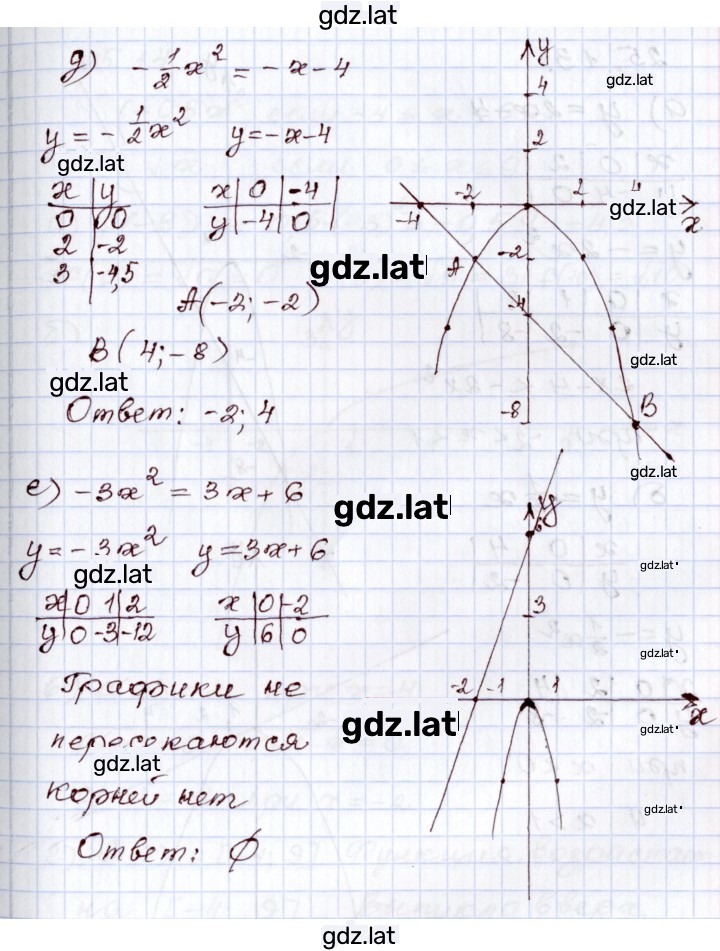 gdz.lat
д) -1/2 x² = -x-4
gdz.lat
y = -1/2 x² y=-x-4
gdz.lat
x | y x | 0 | -4
0 | 0 y | -4 | 0
2 | -2
3 | -4,5
gdz.lat
A(-2; -2)
B(4; -8)
gdz.lat
Ответ: -2; 4
y
4
2
-4 -2 2 4 x
gdz.lat
A -2
-4
gdz.lat
-8 B
gdz.lat
е) -3x² = 3x+6
gdz.lat
y=-3x² y=3x+6
gdz.lat
x | 0 | 1 | 2 x | 0 | -2
y | 0 | -3 | -12 y | 6 | 0
Графики не
пересекаются
gdz.lat
корней нет
Ответ: ∅
y
6
gdz.lat
3
gdz.lat
-2 -1 1 x
gdz.lat
gdz.lat
gdz.lat
gdz.lat